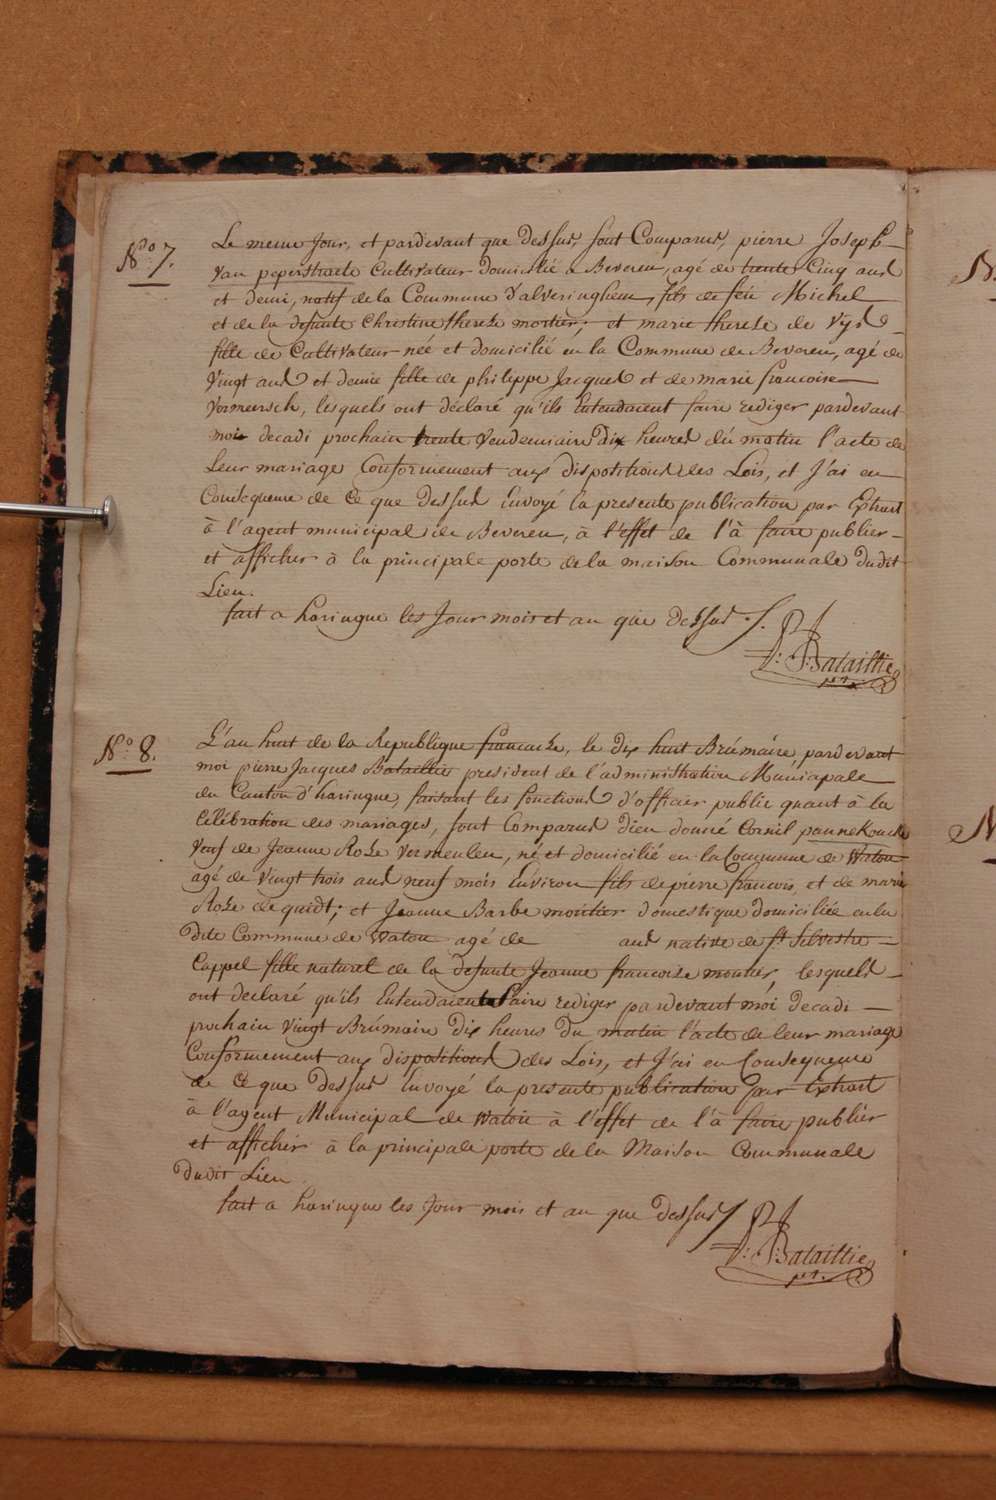 N.º 7.
Le meme Jour, et pardevant que dessus, sont Comparus, pierre Joseph
van peperstraete Cultivateur domicilié a Beveren, agé de trente Cinq ans
et demi, natif de la Commune d'alveringhem, fils de feu Michel
et de la defunte Christine therese mortier; et marie therese de Vys
fille de Cultivateur née et domicilié en la Commune de Beveren, agé de
Vingt ans et demie fille de philippe Jacques et de marie francoise
Vermeersch, lesquels ont déclaré qu'ils Entendaient faire rediger pardevant
moi decadi prochain trente Vendemiaire dix heures du matin l'acte de
Leur mariage Conformement aux dispositions des Lois, et J'ai en
Consequence de Ce que dessus Envoyé la presente publication par Extrait
à l'agent municipal de Beveren, à l'effet de l'à faire publier
et afficher à la principale porte de la maison Communale dudit
Lien.
fait a haringue les Jour mois et an que dessus /.
P: J: Bataillie
pt.
N.º 8.
L'an huit de la Republique francaise, le dix huit Brúmaire, pardevant
moi pierre Jacques Bataillie president de l'administration Municipale
du Canton d'haringue, faisant les fonctions d'officier public quant à la
Célébration des mariages, sont Comparus Dieu donné Cornil pannekoucke
Veuf de Jeanne Rose Vermeulen, né et domicilié en la Commune de Watou
agé de Vingt trois ans neuf mois Environ fils de pierre francois, et de marie
Rose de quidt; et Jeanne Barbe mortier domestique domiciliée en la
dite Commune de Watou agé de ans native de St Silvestre
Cappel fille naturel de la defunte Jeanne francoise mortier, lesquels
ont declaré qu'ils Entendaient faire rediger pardevant moi decadi
prochain Vingt Brúmaire Dix heures du matin l'acte de leur mariage
Conformement aux dispositions des Lois, et J'ai en Consequence
de Ce que dessus Envoyé la presente publication par Extrait
à l'agent Municipal de Watou à l'effet de l'à faire publier
et afficher à la principale porte de la Maison Communale
dudit Lien.
fait a haringue les Jour mois et an que dessus /
P: J: Bataillie
pt.